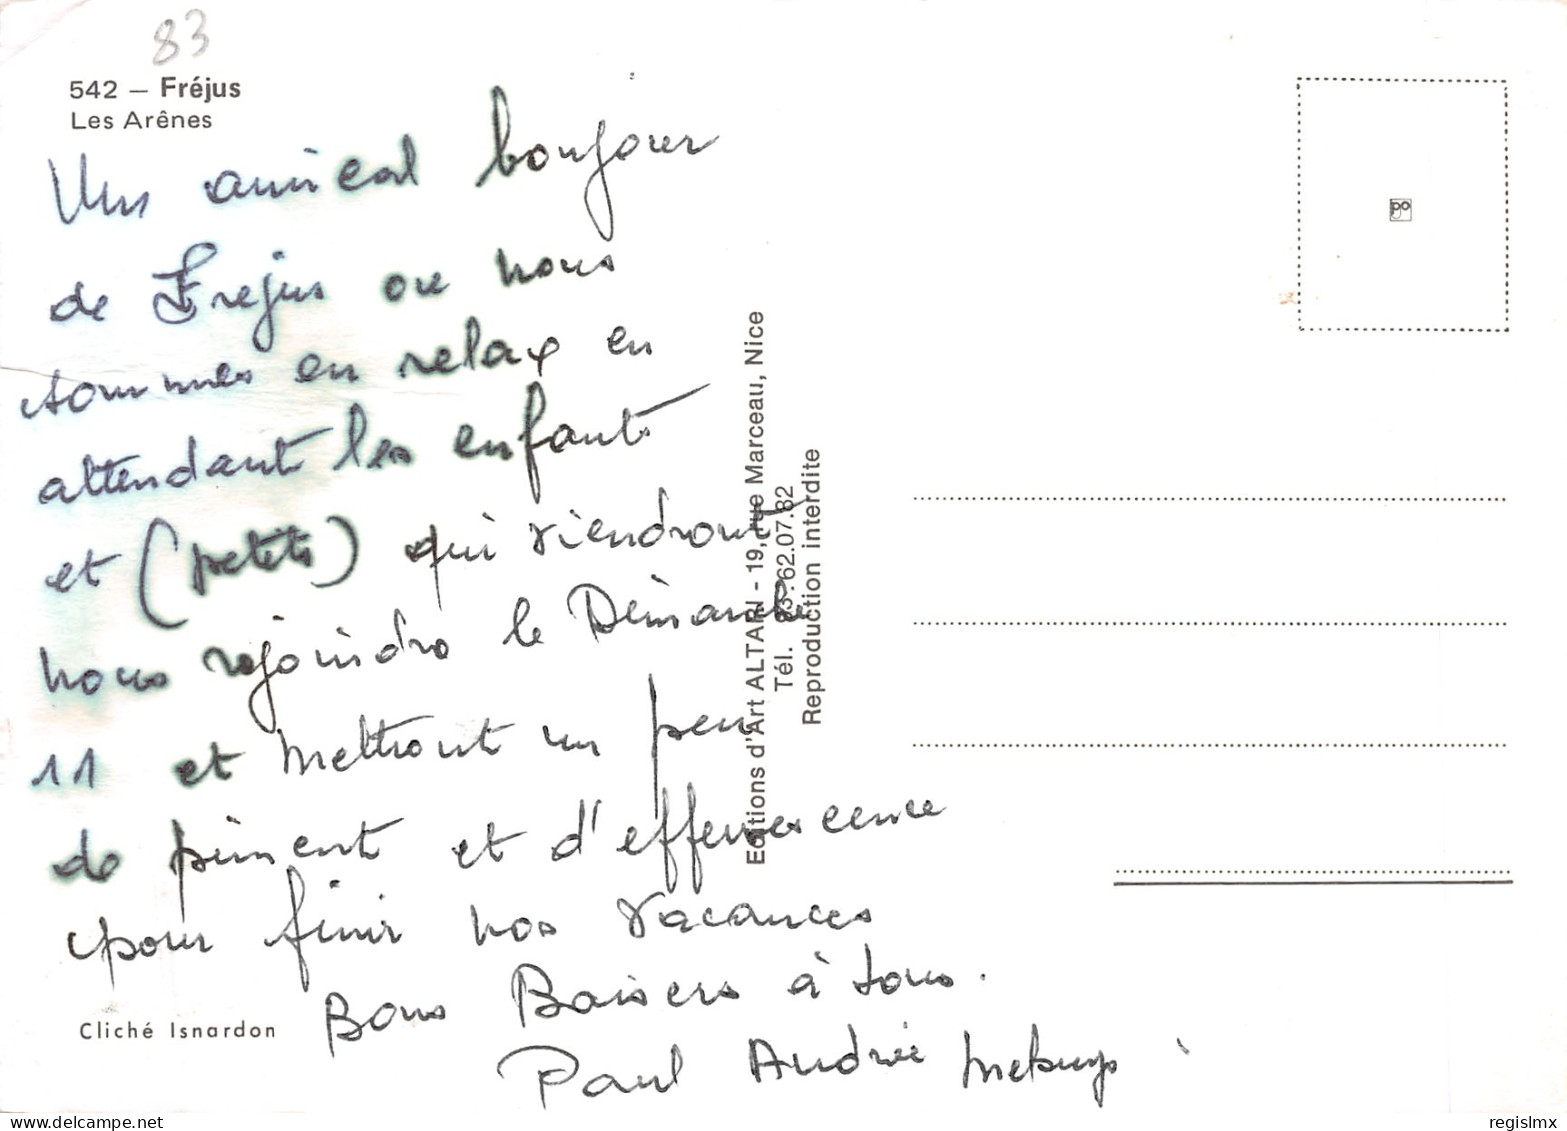 83
542 — Fréjus
Les Arênes
Un amical bonjour
de Fréjus ou nous
sommes en relax en
attendant les enfants
et (petits) qui viendront
nous rejoindre le Dimanche
11 et mettront un peu
de piment et d'effervescence
pour finir nos vacances
Bons Baisers à tous.
Paul Andrée
Cliché Isnardon
Editions d'Art ALTARI - 19, rue Marceau, Nice
Tél. 93.62.07.82
Reproduction interdite
delcampe.net
regislmx